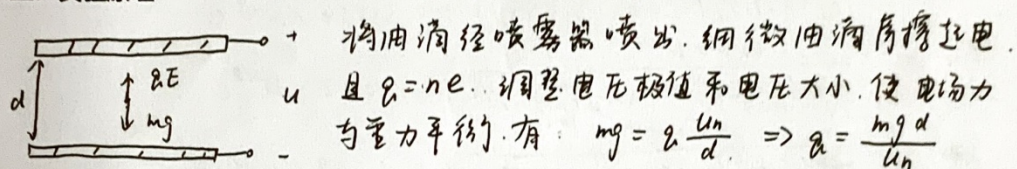 将油滴经喷雾器喷出.细微油滴摩擦起电.
且 q=ne. 调整电压极值和电压大小.使电场力
与重力平衡.有: mg = q Un/d. ⇒ q = mgd/Un
+
d
qE
mg
u
-